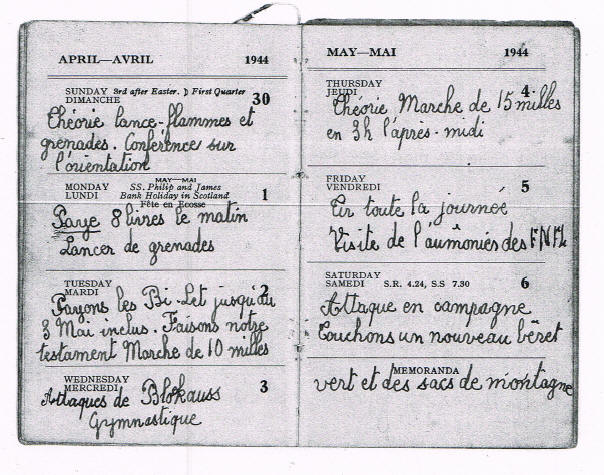 APRIL—AVRIL 1944
SUNDAY 3rd after Easter. ☽ First Quarter
DIMANCHE 30
Théorie lance-flammes et
grenades. Conférence sur
l'orientation
MAY—MAI
MONDAY SS. Philip and James
LUNDI Bank Holiday in Scotland 1
Fête en Ecosse
Paye 8 livres le matin
Lancer de grenades
TUESDAY
MARDI 2
Payons les Bi-Let jusqu'au
3 Mai inclus. Faisons notre
testament Marche de 10 milles
WEDNESDAY
MERCREDI 3
Attaques de Blokauss
Gymnastique
MAY—MAI 1944
THURSDAY
JEUDI 4
Théorie Marche de 15 milles
en 3h l'après-midi
FRIDAY
VENDREDI 5
Tir toute la journeé
Visite de l'aumôniés des FNFL
SATURDAY
SAMEDI S.R. 4.24, S.S 7.30 6
Attaque en campagne
Touchons un nouveau béret
MEMORANDA
vert et des sacs de montagne